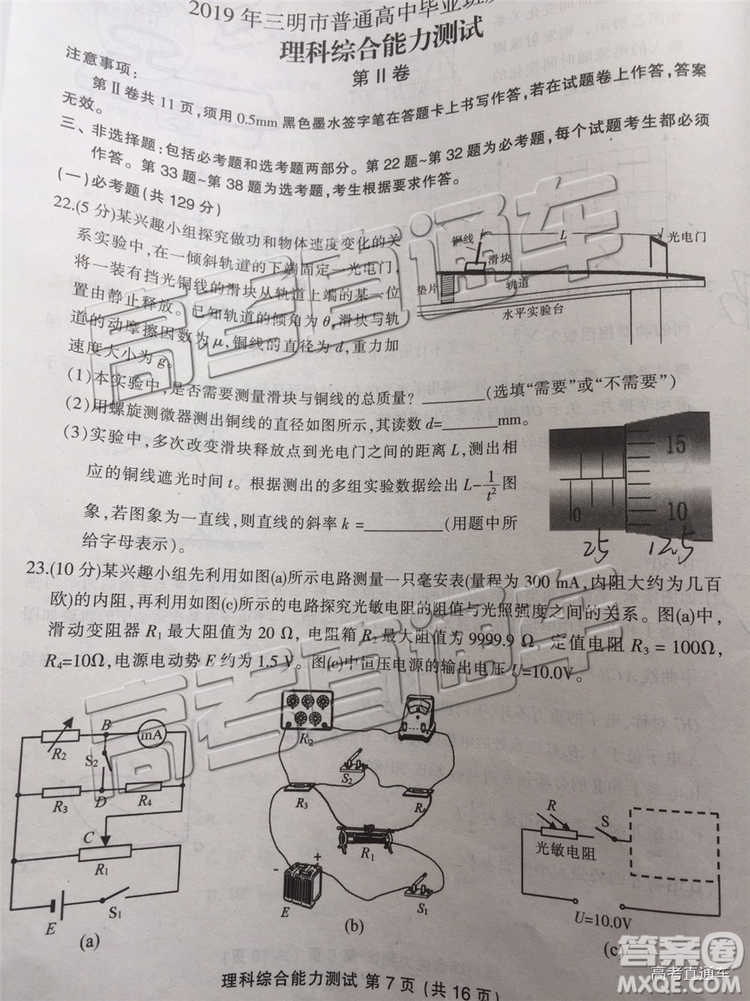 2019年三明市普通高中毕业班
理科综合能力测试
第Ⅱ卷
注意事项:
第Ⅱ卷共11页,须用0.5mm黑色墨水签字笔在答题卡上书写作答,若在试题卷上作答,答案
无效。
三、非选择题:包括必考题和选考题两部分。第22题~第32题为必考题,每个试题考生都必须
作答。第33题~第38题为选考题,考生根据要求作答。
(一)必考题(共129分)
22.(5分)某兴趣小组探究做功和物体速度变化的关
系实验中,在一倾斜轨道的下端固定一光电门,
将一装有挡光铜线的滑块从轨道上端的某一位
置由静止释放。已知轨道的倾角为θ,滑块与轨
道的动摩擦因数为μ,铜线的直径为d,重力加
速度大小为g。
铜线
L
光电门
滑块
垫片
轨道
水平实验台
(1)本实验中,是否需要测量滑块与铜线的总质量?________(选填“需要”或“不需要”)
(2)用螺旋测微器测出铜线的直径如图所示,其读数d=______mm。
(3)实验中,多次改变滑块释放点到光电门之间的距离L,测出相
应的铜线遮光时间t。根据测出的多组实验数据绘出L-1/t²图
象,若图象为一直线,则直线的斜率k=________(用题中所
给字母表示)。
15
10
0
25 12.5
23.(10分)某兴趣小组先利用如图(a)所示电路测量一只毫安表(量程为300 mA,内阻大约为几百
欧)的内阻,再利用如图(c)所示的电路探究光敏电阻的阻值与光照强度之间的关系。图(a)中,
滑动变阻器R₁最大阻值为20 Ω,电阻箱R₂最大阻值为9999.9 Ω,定值电阻R₃=100Ω,
R₄=10Ω,电源电动势E约为1.5 V。图(c)中恒压电源的输出电压U=10.0V。
R₂
B
mA
S₂
R₃
D
R₄
C
R₁
E
S₁
(a)
R₂
S₂
R₃
R₄
R₁
- +
E
S₁
(b)
R
S
光敏电阻
U=10.0V
(c)
理科综合能力测试 第7页(共16页)
高考直通车
答案圈
高考直通车